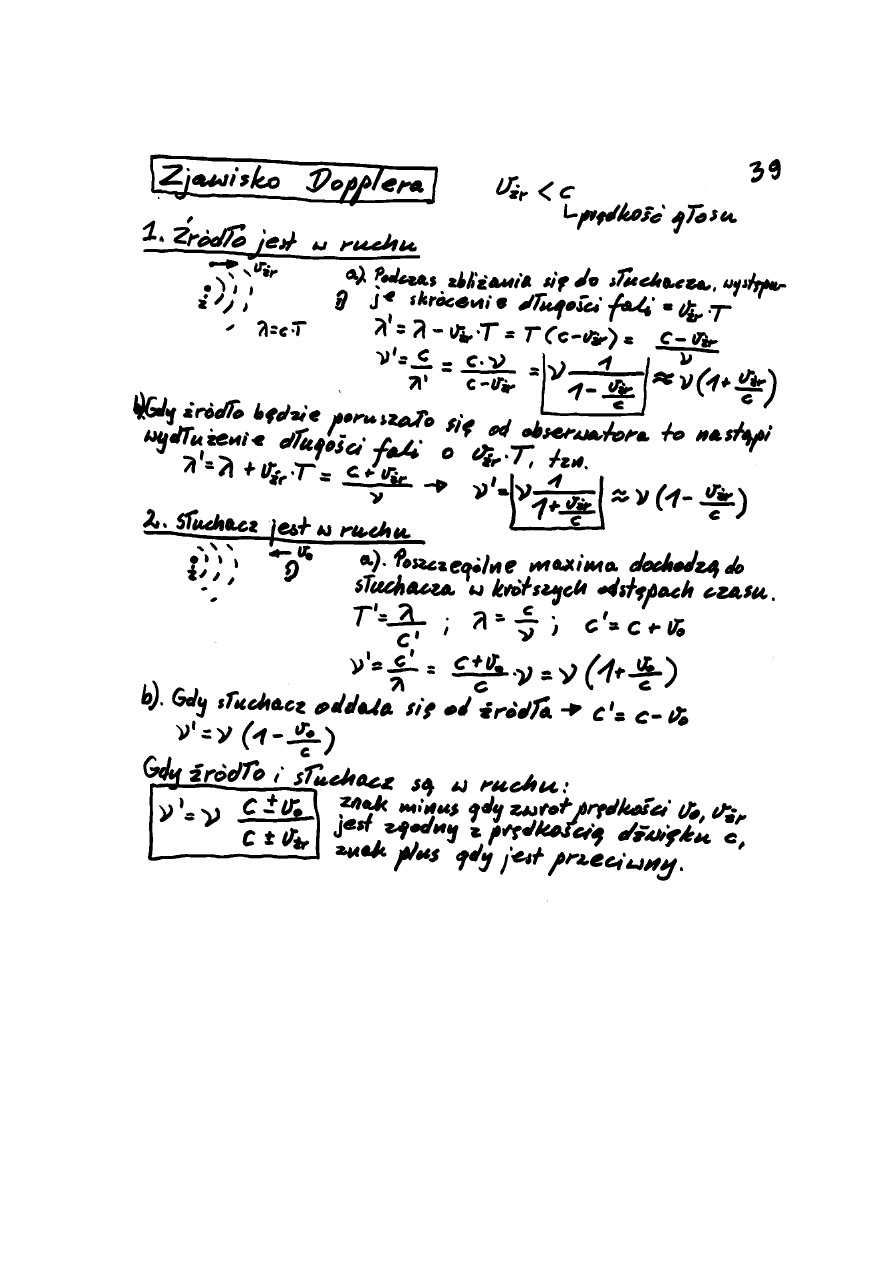 39
Zjawisko Dopplera
v_źr < c
prędkość głosu
1. Źródło jest w ruchu
v_źr
ź
λ=c·T
a). Podczas zbliżania się do słuchacza, występu-
je skrócenie długości fali = v_źr·T
λ' = λ - v_źr·T = T(c-v_źr) = (c-v_źr)/ν
ν' = c/λ' = c·ν/(c-v_źr) = ν 1/(1 - v_źr/c) ≈ ν(1+ v_źr/c)
b) Gdy źródło będzie poruszało się od obserwatora to nastąpi
wydłużenie długości fali o v_źr·T, tzn.
λ' = λ + v_źr·T = (c+v_źr)/ν → ν' = ν 1/(1+ v_źr/c) ≈ ν(1 - v_źr/c)
2. Słuchacz jest w ruchu
ź
v₀
a). Poszczególne maxima dochodzą do
słuchacza w krótszych odstępach czasu.
T' = λ/c' ; λ = c/ν ; c' = c + v₀
ν' = c'/λ = (c+v₀)/c ·ν = ν(1+ v₀/c)
b). Gdy słuchacz oddala się od źródła → c' = c - v₀
ν' = ν(1 - v₀/c)
Gdy źródło i słuchacz są w ruchu:
ν' = ν (c ± v₀)/(c ± v_źr)
znak minus gdy zwrot prędkości v₀, v_źr
jest zgodny z prędkością dźwięku c,
znak plus gdy jest przeciwny.